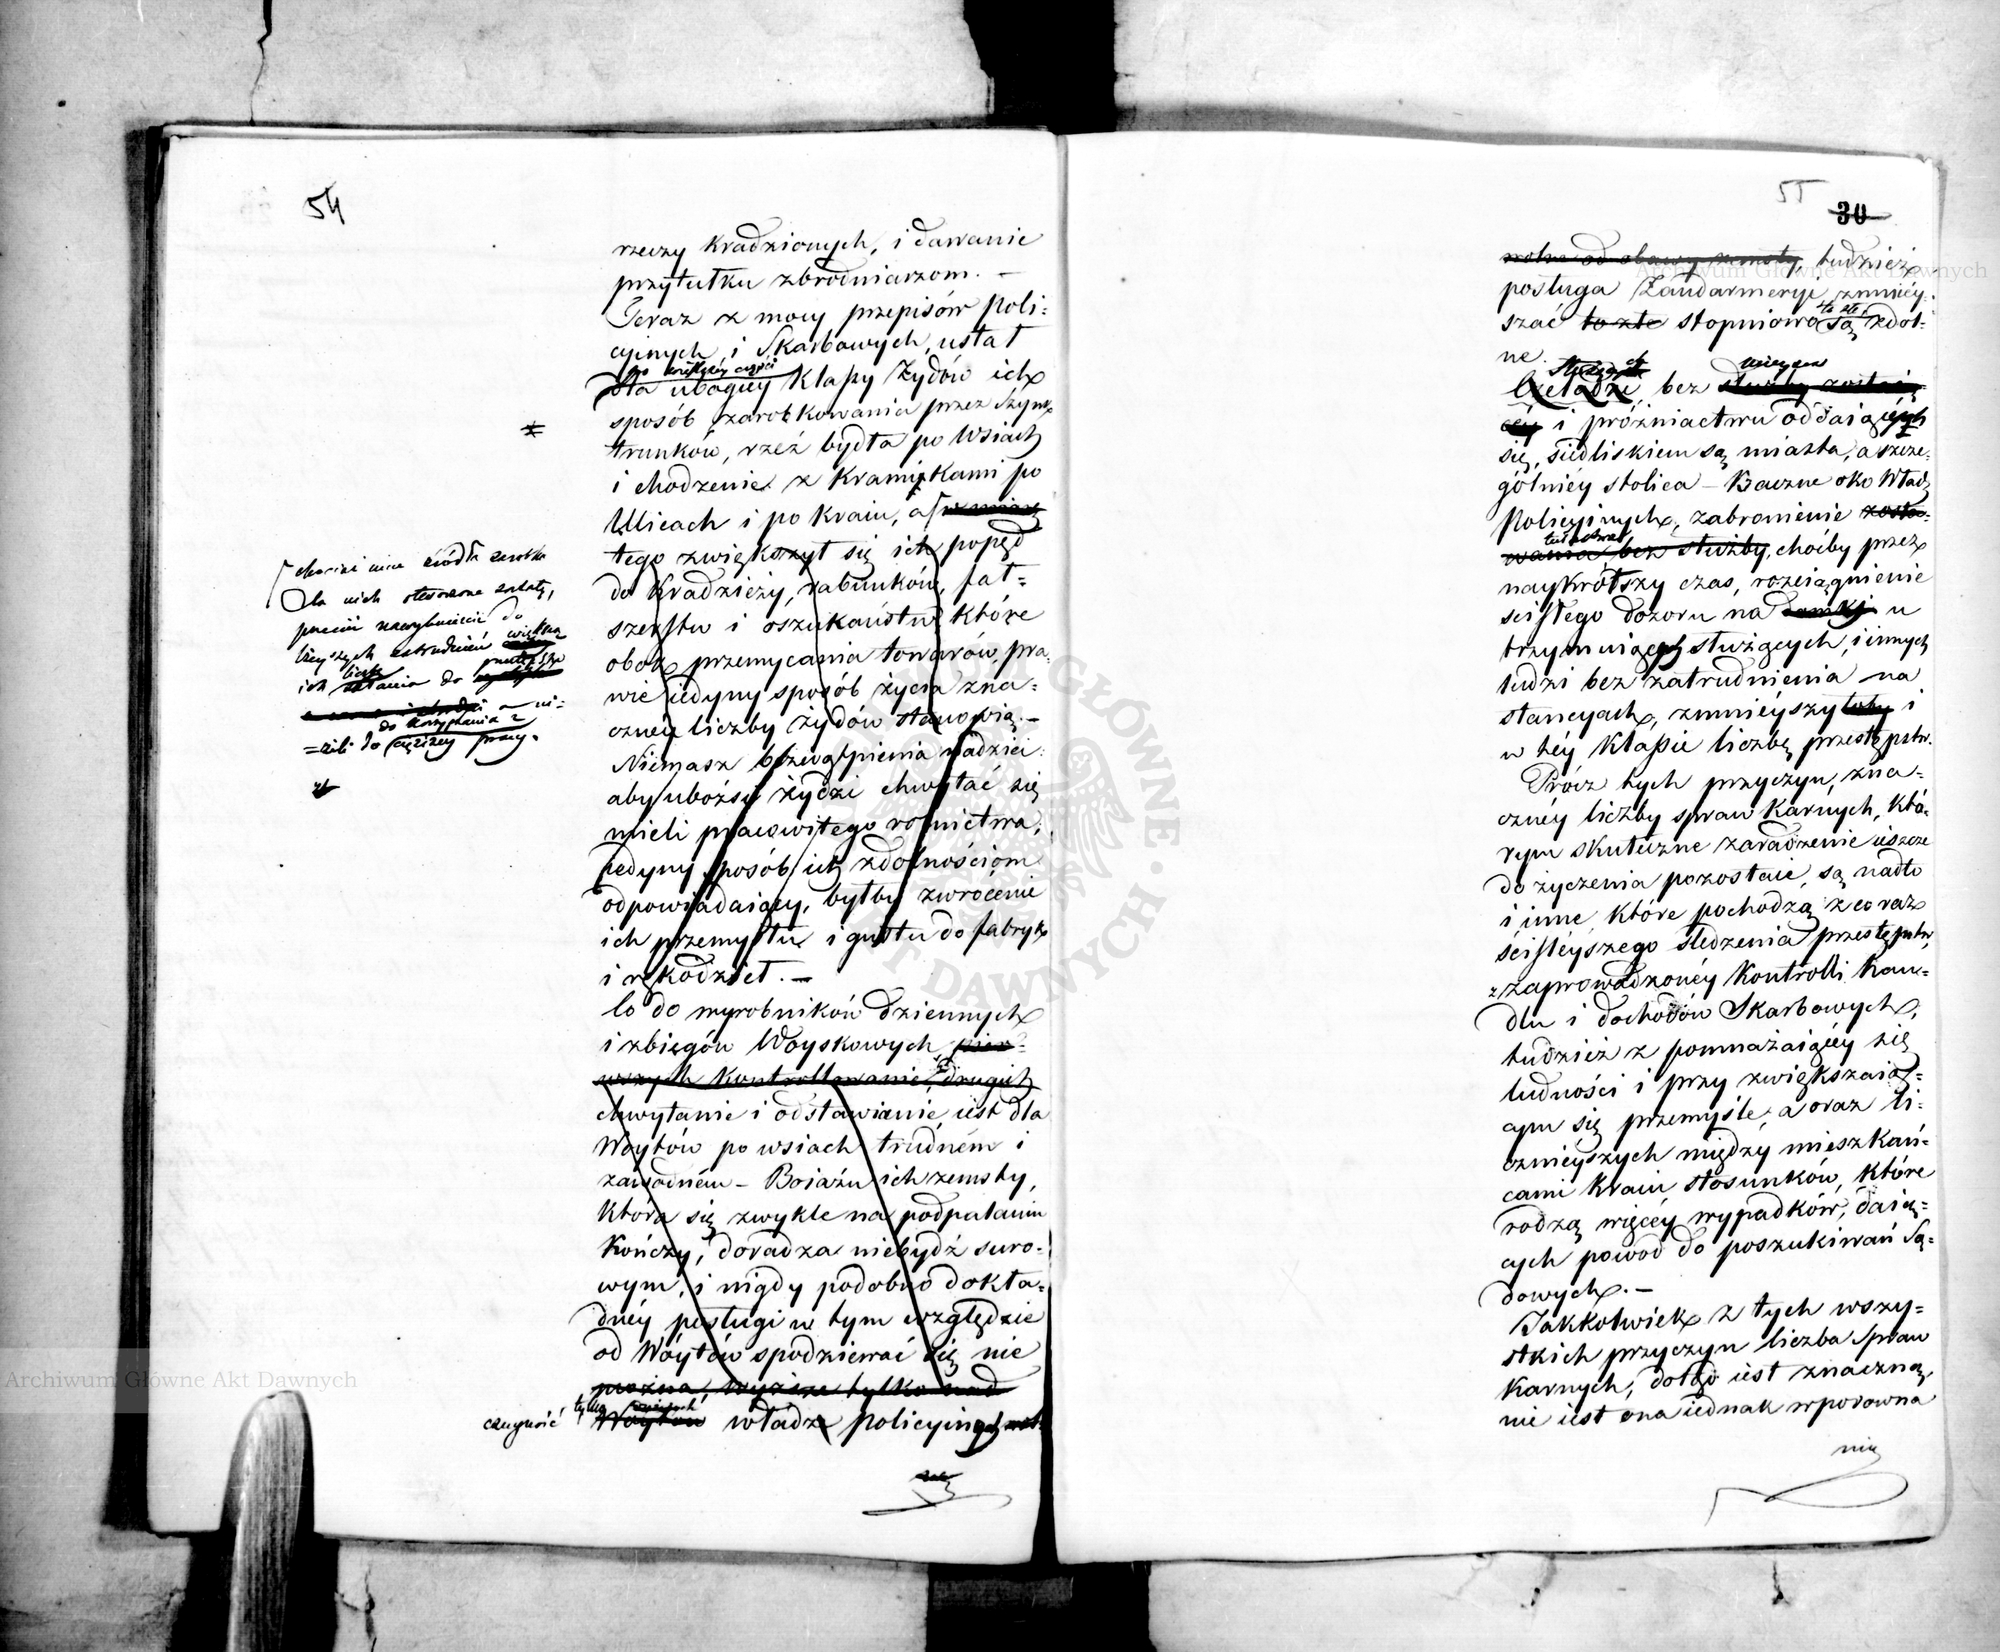 54
rzeczy kradzionych, i dawanie
przytułku zbrodniarzom. —
Teraz z mocy przepisów Poli=
cyinych i Skarbowych, ustał
po większey części
dla ubogiey klassy Żydów ich
sposób zarobkowania przez szynk
trunków, rzeź bydła po Wsiach
i chodzenie z kramikami po
Ulicach i po kraiu, a
tego zwiększył się ich popęd
do kradzieży, rabunków, fał=
szerstw i oszukaństw które
obok przemycania towarów, pra=
wie iedyny sposób życia zna=
czney liczby żydów stanowią. —
Niemasz bezwątpienia nadziei
aby ubożsi żydzi chwytać się
mieli pracowitego rolnictwa;
iedyny sposób ich zdolnościom
odpowiadaiący, byłby zwrócenie
ich przemysłu i gustu do fabryk
i rękodzieł. —
Co do wyrobników dziennych
i zbiegów Woyskowych pier=
wszych kontrollowanie, drugich
chwytanie i odstawianie iest dla
Woytów po wsiach trudném i
zawodném — Boiaźń ich zemsty,
która się zwykle na podpalaniu
kończy, doradza niebydź suro=
wym, i nigdy podobno dokła=
dnéy posługi w tym względzie
od Wóytów spodziewać się nie
można, wyższe tylko nad
czynność tylko wyższych
Woytów władze Policyinych
chociaż inne źródła zarobku
dla nich otworzone zostały,
pracy
55
30
wolne od obawy zemsty, tudzież
posługa Żandarmeryi zmniéy=
szać to złe stopniowo są zdol=
ne.
Czeladzi, bez służby zostaią=
céy i próżniactwu oddaiących
się, siedliskiem są miasta, a szcze=
gólniéy stolica — Baczne oko Władz
Policyinych, zabronienie zosta=
wania bez służby, choćby przez
naykrótszy czas, rozciągnienie
scisłego dozoru na u
trzymuiących służących, i innych
ludzi bez zatrudnienia na
stancyach, zmniéyszyłoby i
w téy klassie liczbę przestępstw.
Prócz tych przyczyn, zna=
cznéy liczby spraw karnych, któ=
rym skuteczne zaradzenie ieszcze
do życzenia pozostaie, są nadto
i inne, które pochodzą z coraz
ściśléyszego śledzenia przestępstw,
z zaprowadzonéy kontrolli han=
dlu i dochodów Skarbowych,
tudzież z pomnażaiącéy się
ludności i przy zwiększaią=
cym się przemyśle, a oraz li=
cznieyszych między mieszkań=
cami kraiu stosunków, które
rodzą więcéy wypadków, daią=
cych powód do poszukiwań Są=
dowych. —
Jakkolwiek z tych wszy=
stkich przyczyn liczba spraw
karnych, dotąd iest znaczną,
nie iest ona iednak w porowna
niu
Archiwum Główne Akt Dawnych
Archiwum Główne Akt Dawnych